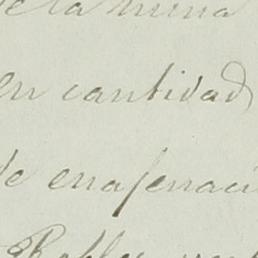 de la mina
en cantidad
de enajenaci